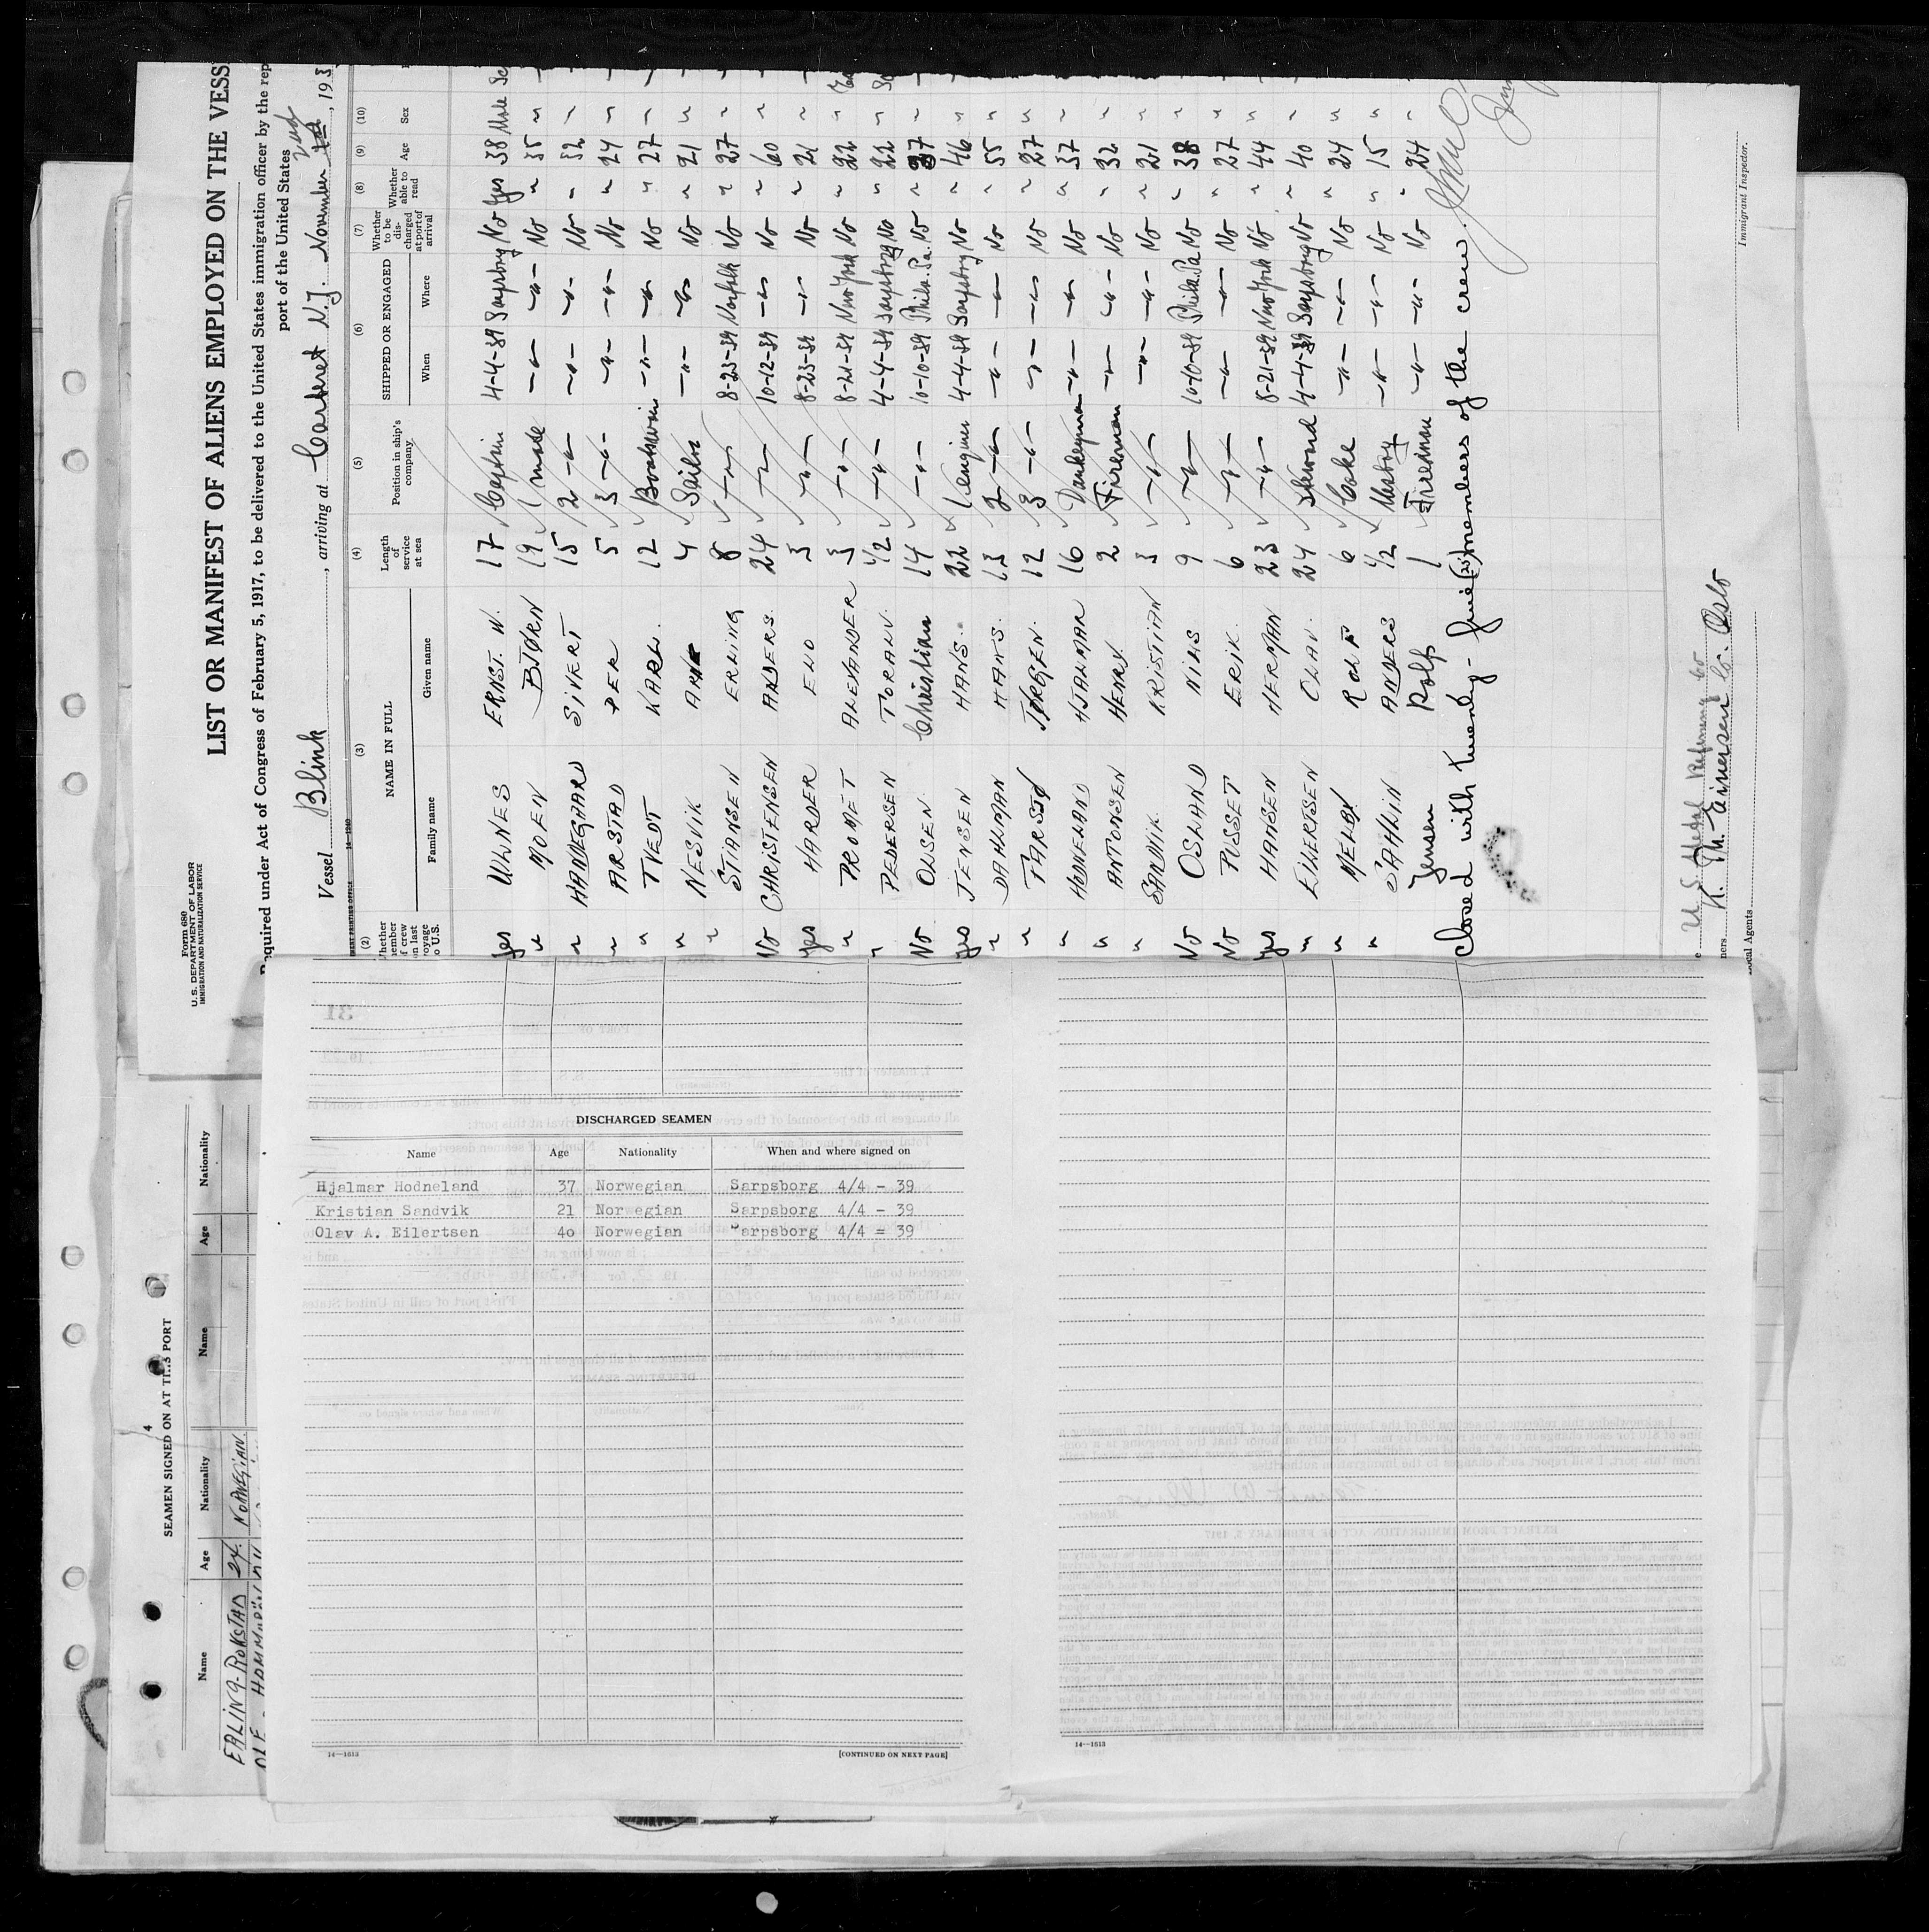 Form 680
U. S. DEPARTMENT OF LABOR
IMMIGRATION AND NATURALIZATION SERVICE
LIST OR MANIFEST OF ALIENS EMPLOYED ON THE VESS
Required under Act of Congress of February 5, 1917, to be delivered to the United States immigration officer by the rep
port of the United States
Vessel Blink, arriving at Carteret N.J. November 2nd, 193
(2) (3) (4) (5) (6) (7) (8) (9) (10)
NAME IN FULL Length of service at sea Position in ship's company SHIPPED OR ENGAGED Whether to be discharged at port of arrival Whether able to read Age Sex
Family name Given name When Where
Yes ULLNES ERNST W. 17 Captin 4-4-39 Sarpsborg No Yes 38 Male
" MOEN BJØRN 19 1 mate -"- -"- No " 35 "
" HANDEGÅRD SIVERT 15 2 -"- -"- -"- No " 32 "
" AARSTAD PER 5 3 -"- -"- -"- No " 24 "
" TVEDT KARL. 12 Boatswain -"- -"- No " 27 "
" NESVIK ARNE 4 Sailor -"- -"- No " 21 "
" STIANSEN ERLING 8 -"- 8-23-39 Norfolk No " 27 "
No CHRISTENSEN ANDERS. 24 -"- 10-12-39 -"- No " 60 "
Yes HARDER 3 -"- 8-23-39 -"- No " 21 "
" PROMET ALEXANDER 3 -"- 8-21-39 New York No " 22 "
" PEDERSEN 1/2 -"- 4-4-39 Sarpsborg No " 22 "
No OLSEN Christian 14 -"- 10-10-39 Phila. Pa. No " 37 "
Yes JENSEN HANS. 22 1 enginer 4-4-39 Sarpsborg No " 46 "
" DAHLMAN HANS. 13 2 -"- -"- -"- No " 55 "
" JØRGEN. 12 3 -"- -"- -"- No " 27 "
" HODNELAND HJALMAR 16 Dankeyman -"- -"- No " 37 "
" ANTONSEN HENRY. 2 Fireman -"- -"- No " 32 "
SANDVIK. KRISTIAN 3 -"- -"- -"- No " 21 "
No OSLAND NILS 9 -"- 10-10-39 Phila. Pa No " 38 "
No PUSSET ERIK. 6 -"- -"- -"- No " 27 "
Yes HANSEN HERMAN 23 -"- 8-21-39 New York No " 44 "
" EILERTSEN OLAV. 24 4-4-39 Sarpsborg No " 40 "
" MELBY ROLF 6 Coke -"- -"- No " 24 "
" SAHLIN ANDERS 1/2 Messboy -"- -"- No " 15 "
Jensen Rolf 1 Fireman -"- -"- No " 24 "
Closed with twenty-five (25) members of the crew.
U. S. Metal Refining Co
K. Th. Einersen Co. Oslo
Local Agents
Immigrant Inspector.
DISCHARGED SEAMEN
Name Age Nationality When and where signed on
Hjalmar Hodneland 37 Norwegian Sarpsborg 4/4 - 39
Kristian Sandvik 21 Norwegian Sarpsborg 4/4 - 39
Olav A. Eilertsen 4o Norwegian Sarpsborg 4/4 = 39
14—1613 [CONTINUED ON NEXT PAGE]
14—1613
4
SEAMEN SIGNED ON AT THIS PORT
Name Age Nationality Name Age Nationality
ERLING-ROKSTAD 24. NORWEGIAN
OLE -